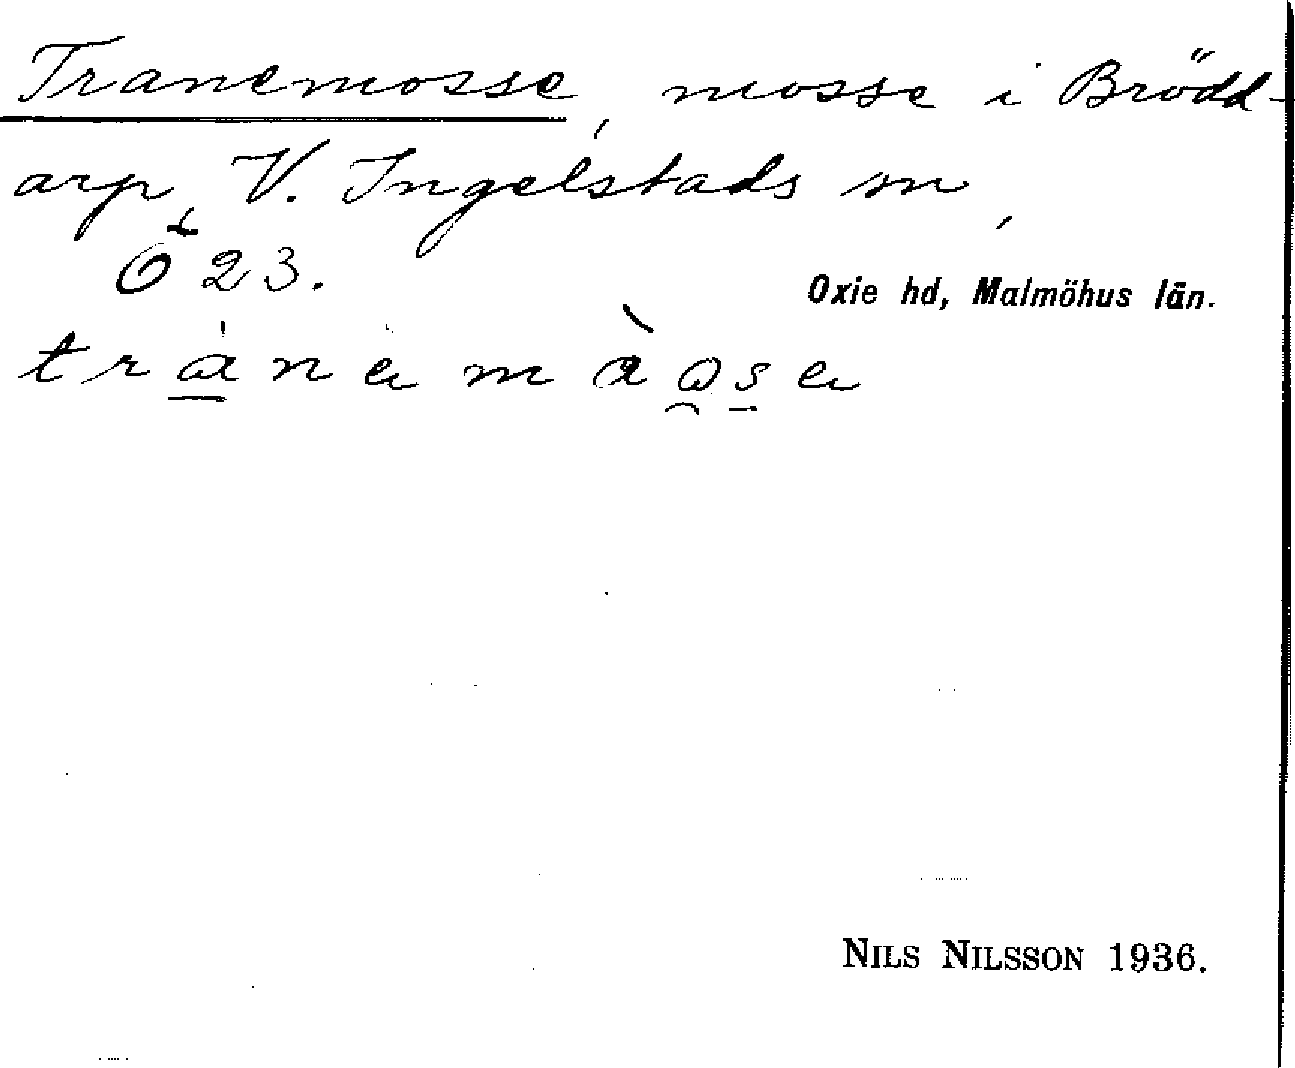 Tranemosse, mosse i Brödd-
arp, V. Ingelstads sn,
Ö 23.
Oxie hd, Malmöhus län.
NILS NILSSON 1936.